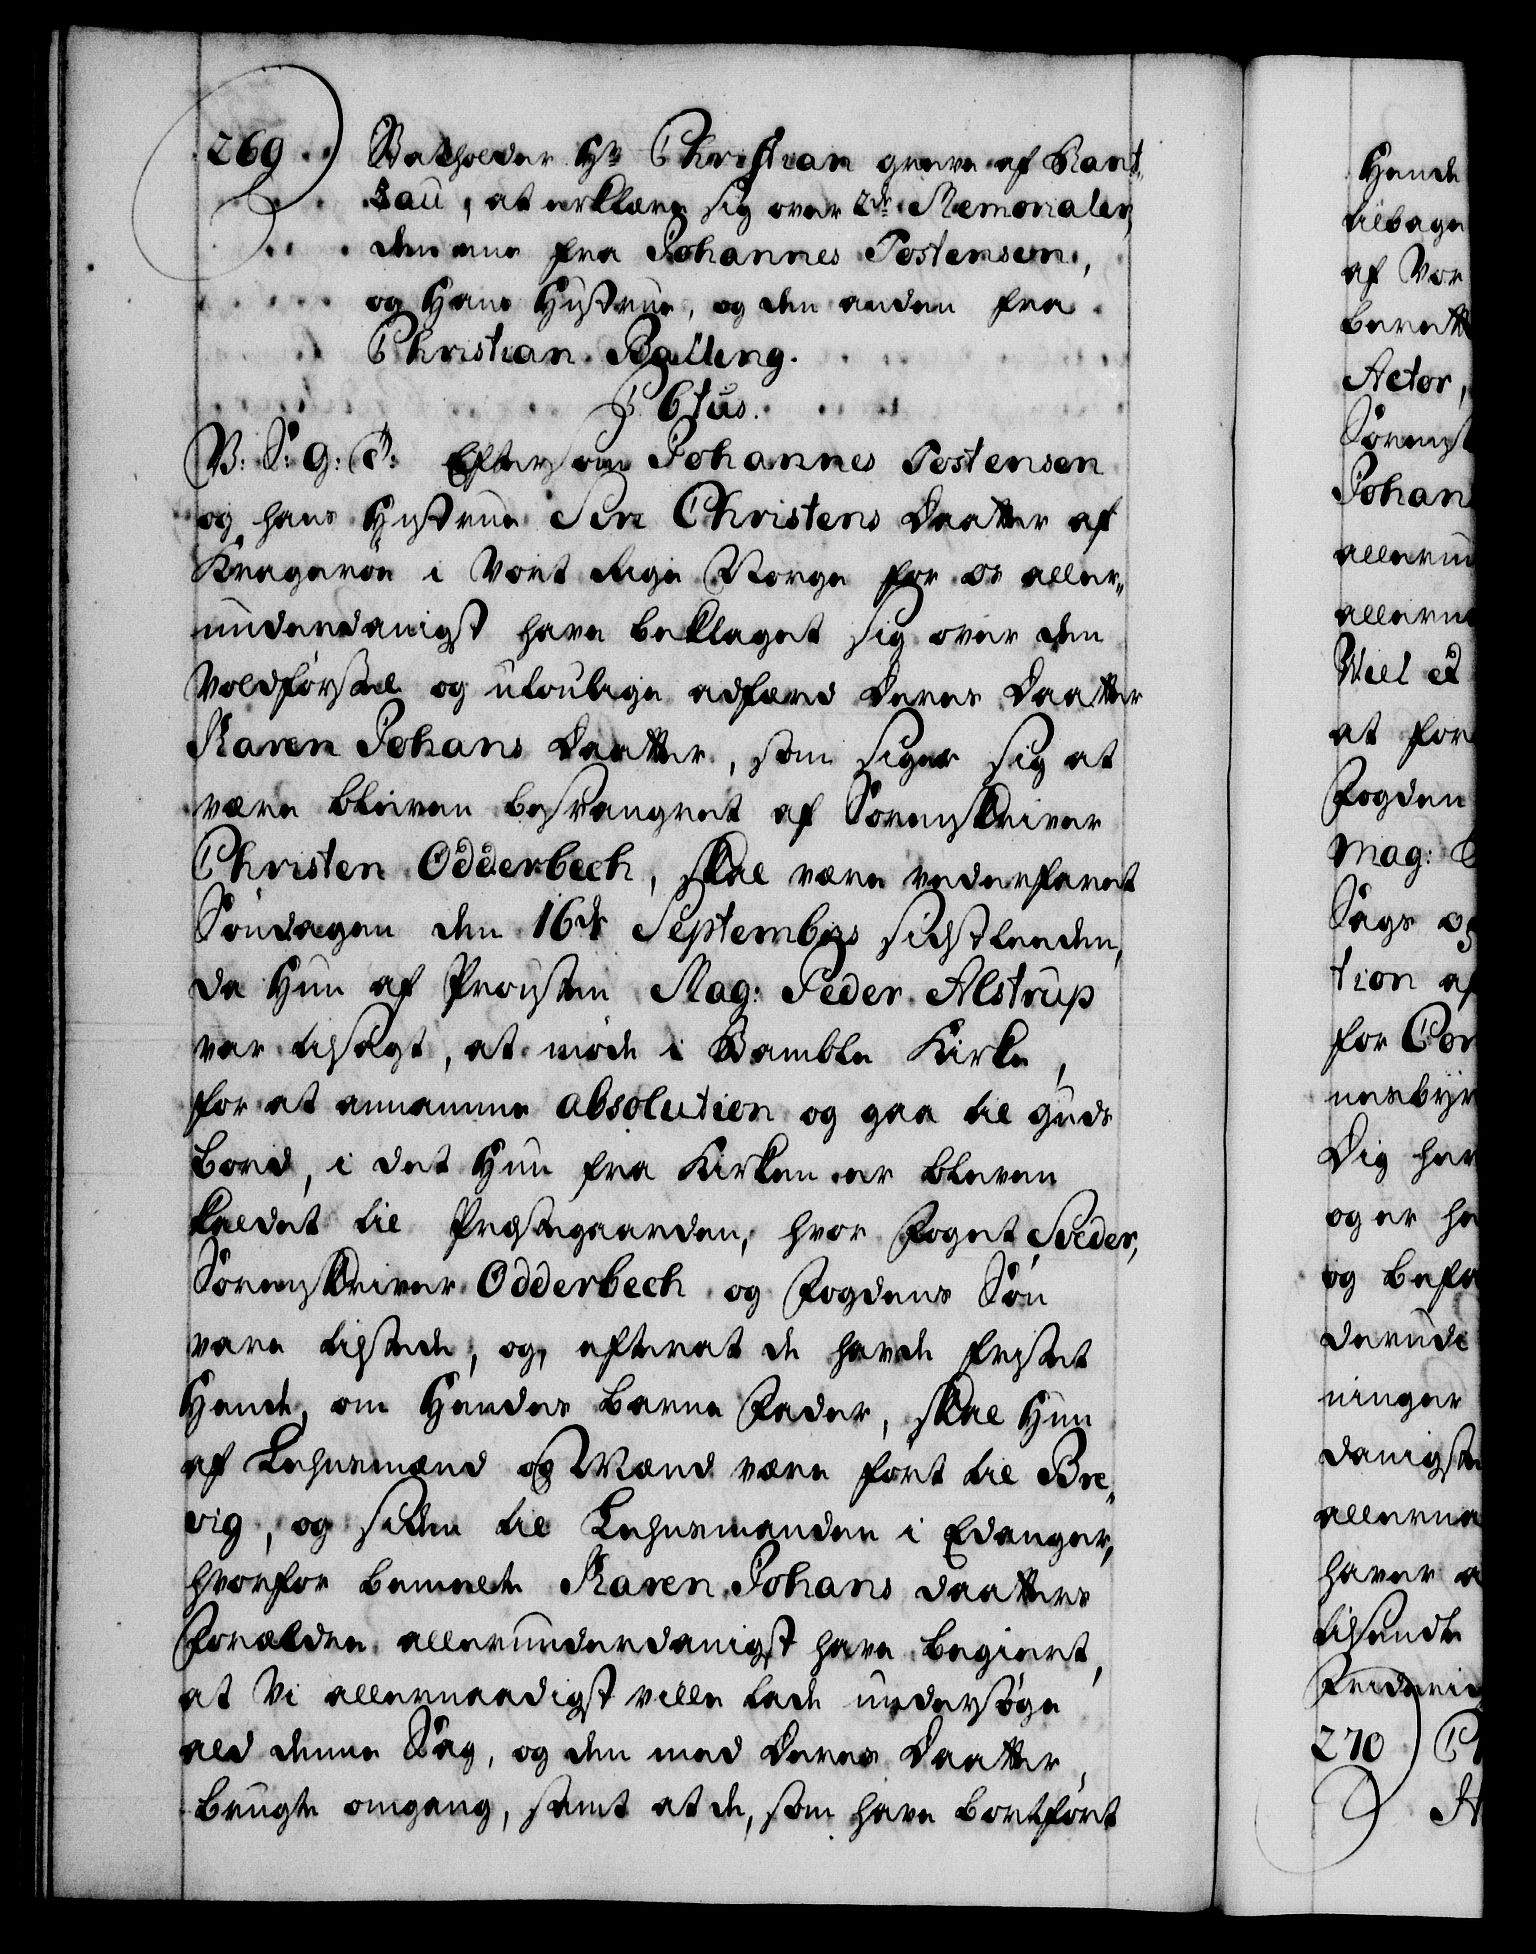 269. Statholder Hr. Christian greve af Rant-
zau, at erklære sig over 2de Memorialer,
den ene fra Johannes Tostensen,
og Hans Hustrue, og den anden fra
Christian Balling.
C 6tus.
V: S: G: T: Eftersom Johannes Tostensen
og hans Hustrue Sire Christens Daatter af
Krageröe i Vort Rige Norge for os aller-
underdanigst have beklaget sig over den
Voldförsel og ulovlige adfærd Deres Daatter
Karen Johans Daatter, som siger sig at
være bleven besvangret af Sorenskriver
Christen Odderbech, skal være vederfaret
Söndagen den 16de Septembris sidstleeden,
da Hun af Provsten Mag: Peder Alstrup
var tilsagt, at möde i Bamble Kirke,
for at annamme absolution og gaa til Guds
bord, i det Hun fra Kirken er bleven
kaldet til Præstegaarden, hvor Foget
Sorenskriver Odderbech og Fogdens Sön
vare tilstede, og, efterat de havde fristet
Hende, om Hendes barne Fader, skal Hun
af Lehnsmænd og Mænd være fört til Bre-
vig, og siden til Lehnsmanden i Edanger,
hvorfor bemelte Karen Johans daatters
Forældre allerunderdanigst have begiert,
at Vi allernaadigst ville lade undersöge
ald denne Sag, og den med Deres Daatter
brugte omgang, samt at de, som have bortfört
Hende
tilbage
af Vor
berette
Actor,
Sorensk
Johan
allerun
allerun
Viel
at for
Fogden
Mag:
Sags og
tion af
for Con
nesbyr
Dig her
og er he
og befa
derude
ninger
danigste
allerna
haver a
tilsendte
Frideric
270